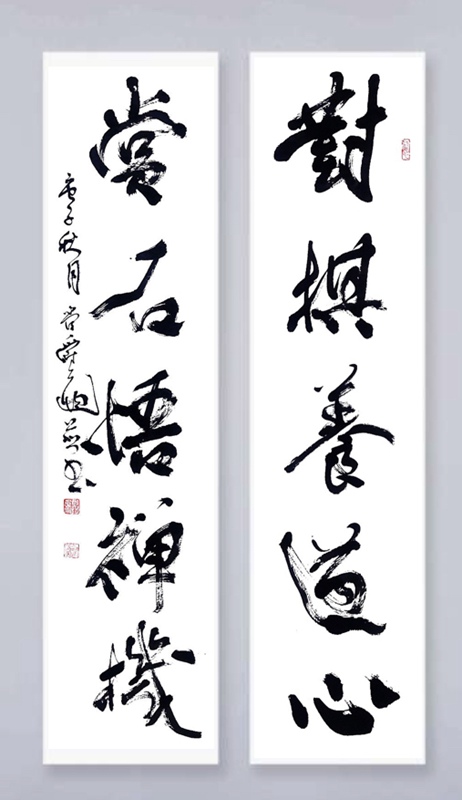 對棋養道心
賞石悟禪機
庚子秋月